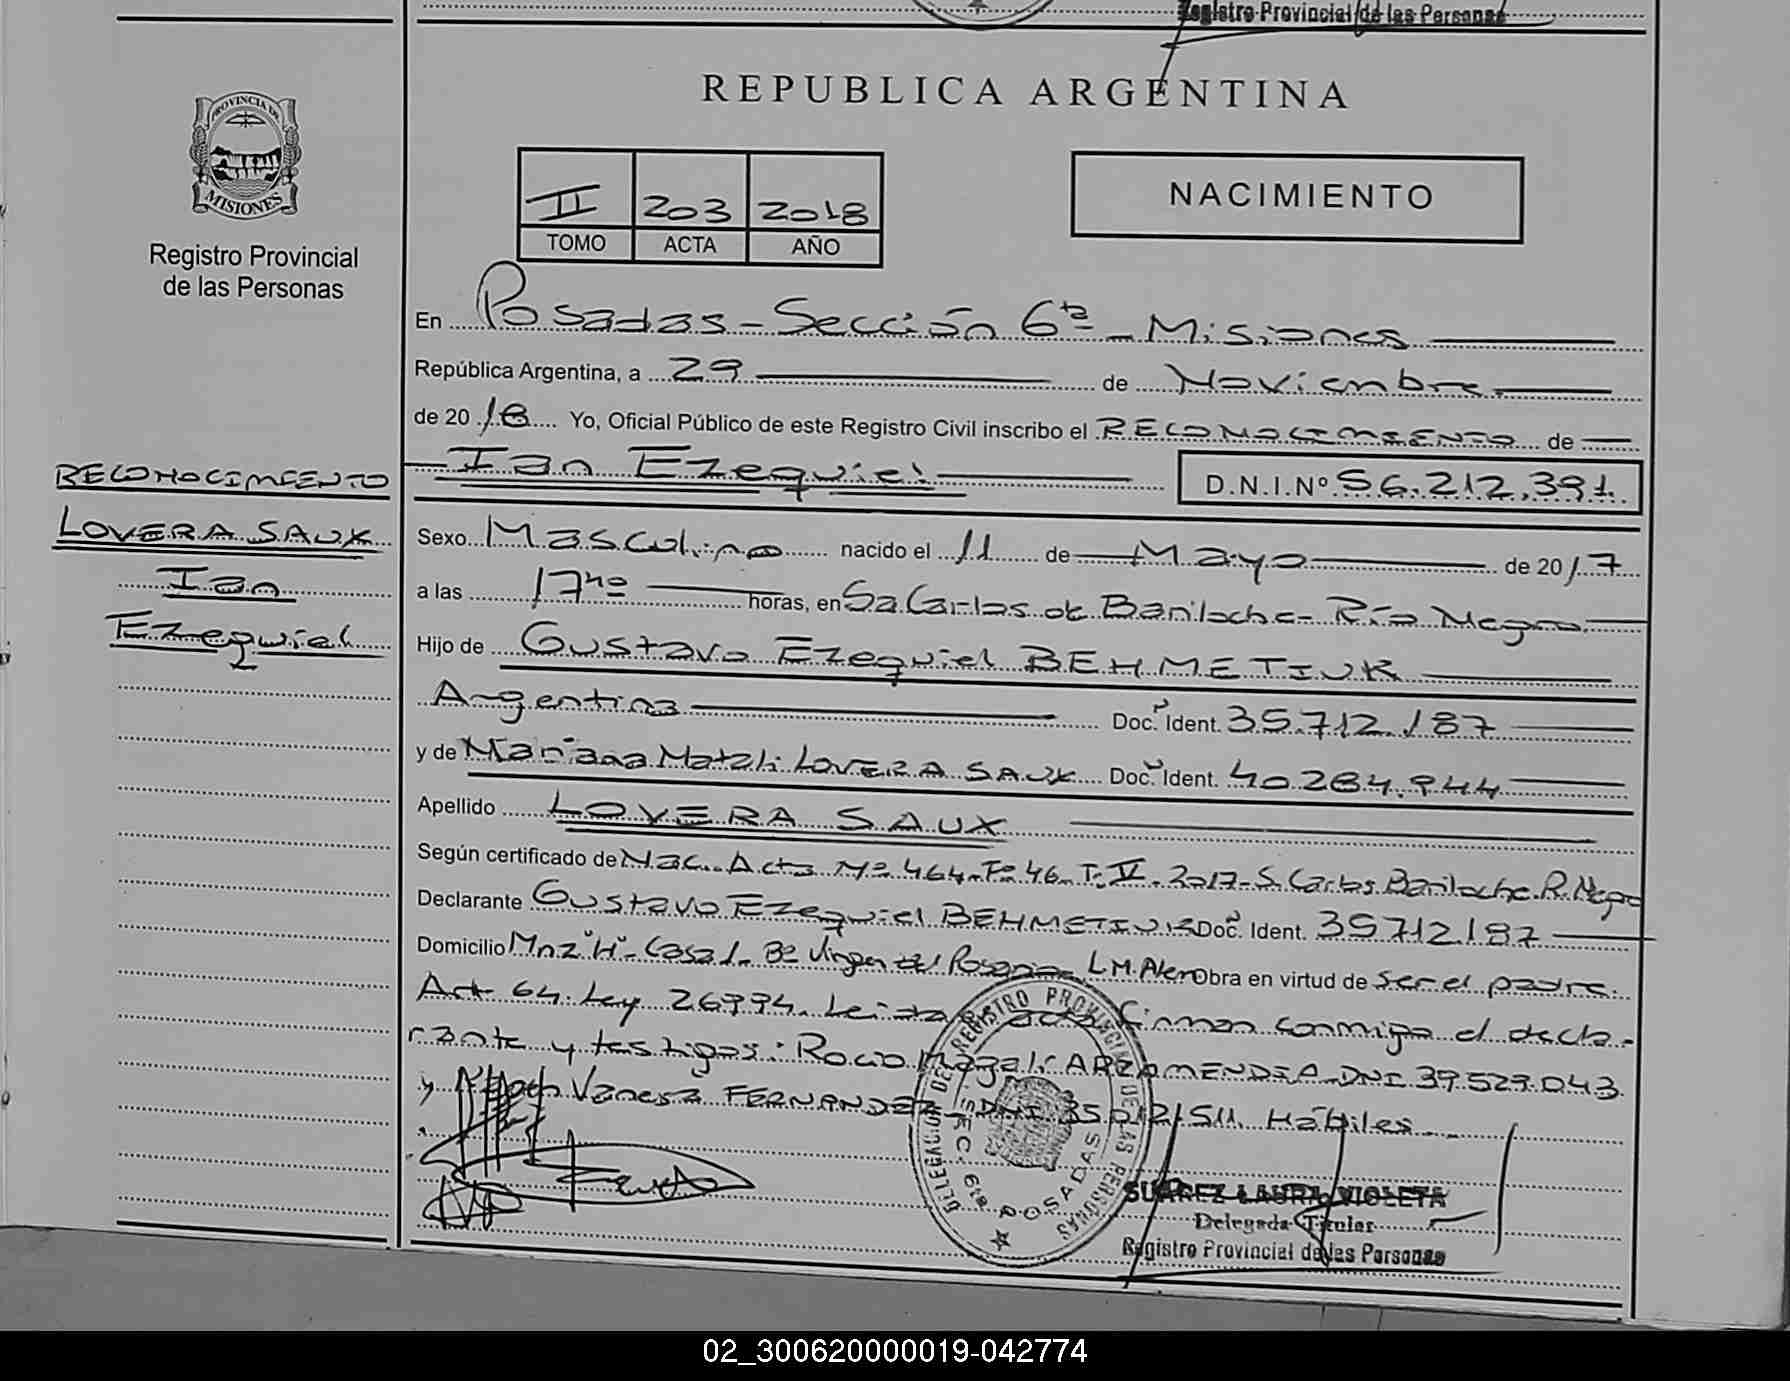 Registro Provincial de las Personas
REPUBLICA ARGENTINA
PROVINCIA DE
MISIONES
Registro Provincial
de las Personas
II 203 2018
TOMO ACTA AÑO
NACIMIENTO
En Posadas - Sección 6ta - Misiones
República Argentina, a 29 de Noviembre
de 2018 Yo, Oficial Público de este Registro Civil inscribo el RECONOCIMIENTO de
Ian Ezequiel D.N.I.Nº 56.212.391
RECONOCIMIENTO
LOVERA SAUX
Ian
Ezequiel
Sexo Masculino nacido el 11 de Mayo de 2017
a las 17 hs horas, en Sa. Carlos de Bariloche - Río Negro
Hijo de Gustavo Ezequiel BEHMETIUK
Argentina Doc. Ident. 35.712.187
y de Mariana Matali LOVERA SAUX Doc. Ident. 40.284.944
Apellido LOVERA SAUX
Según certificado de Nac. Acta Nº 464-Fº 46-T. IV-2017-S. Carlos Bariloche-R. Negro
Declarante Gustavo Ezequiel BEHMETIUK Doc. Ident. 35712187
Domicilio Mnz "H" - Casa 1 - Bº Virgen del Rosario L.M. Alem Obra en virtud de ser el padre.
Art 64. Ley 26994. Leída firman conmigo el decla-
rante y testigos: Rocio Magali ARZAMENDIA DNI 39.529.043
y Vanesa FERNANDEZ - DNI 35.012.511. Hábiles
DELEGACION DEL REGISTRO PROVINCIAL DE LAS PERSONAS
SEC. 6ta POSADAS
SUAREZ LAURA VIOLETA
Delegada Titular
Registro Provincial de las Personas
02_300620000019-042774